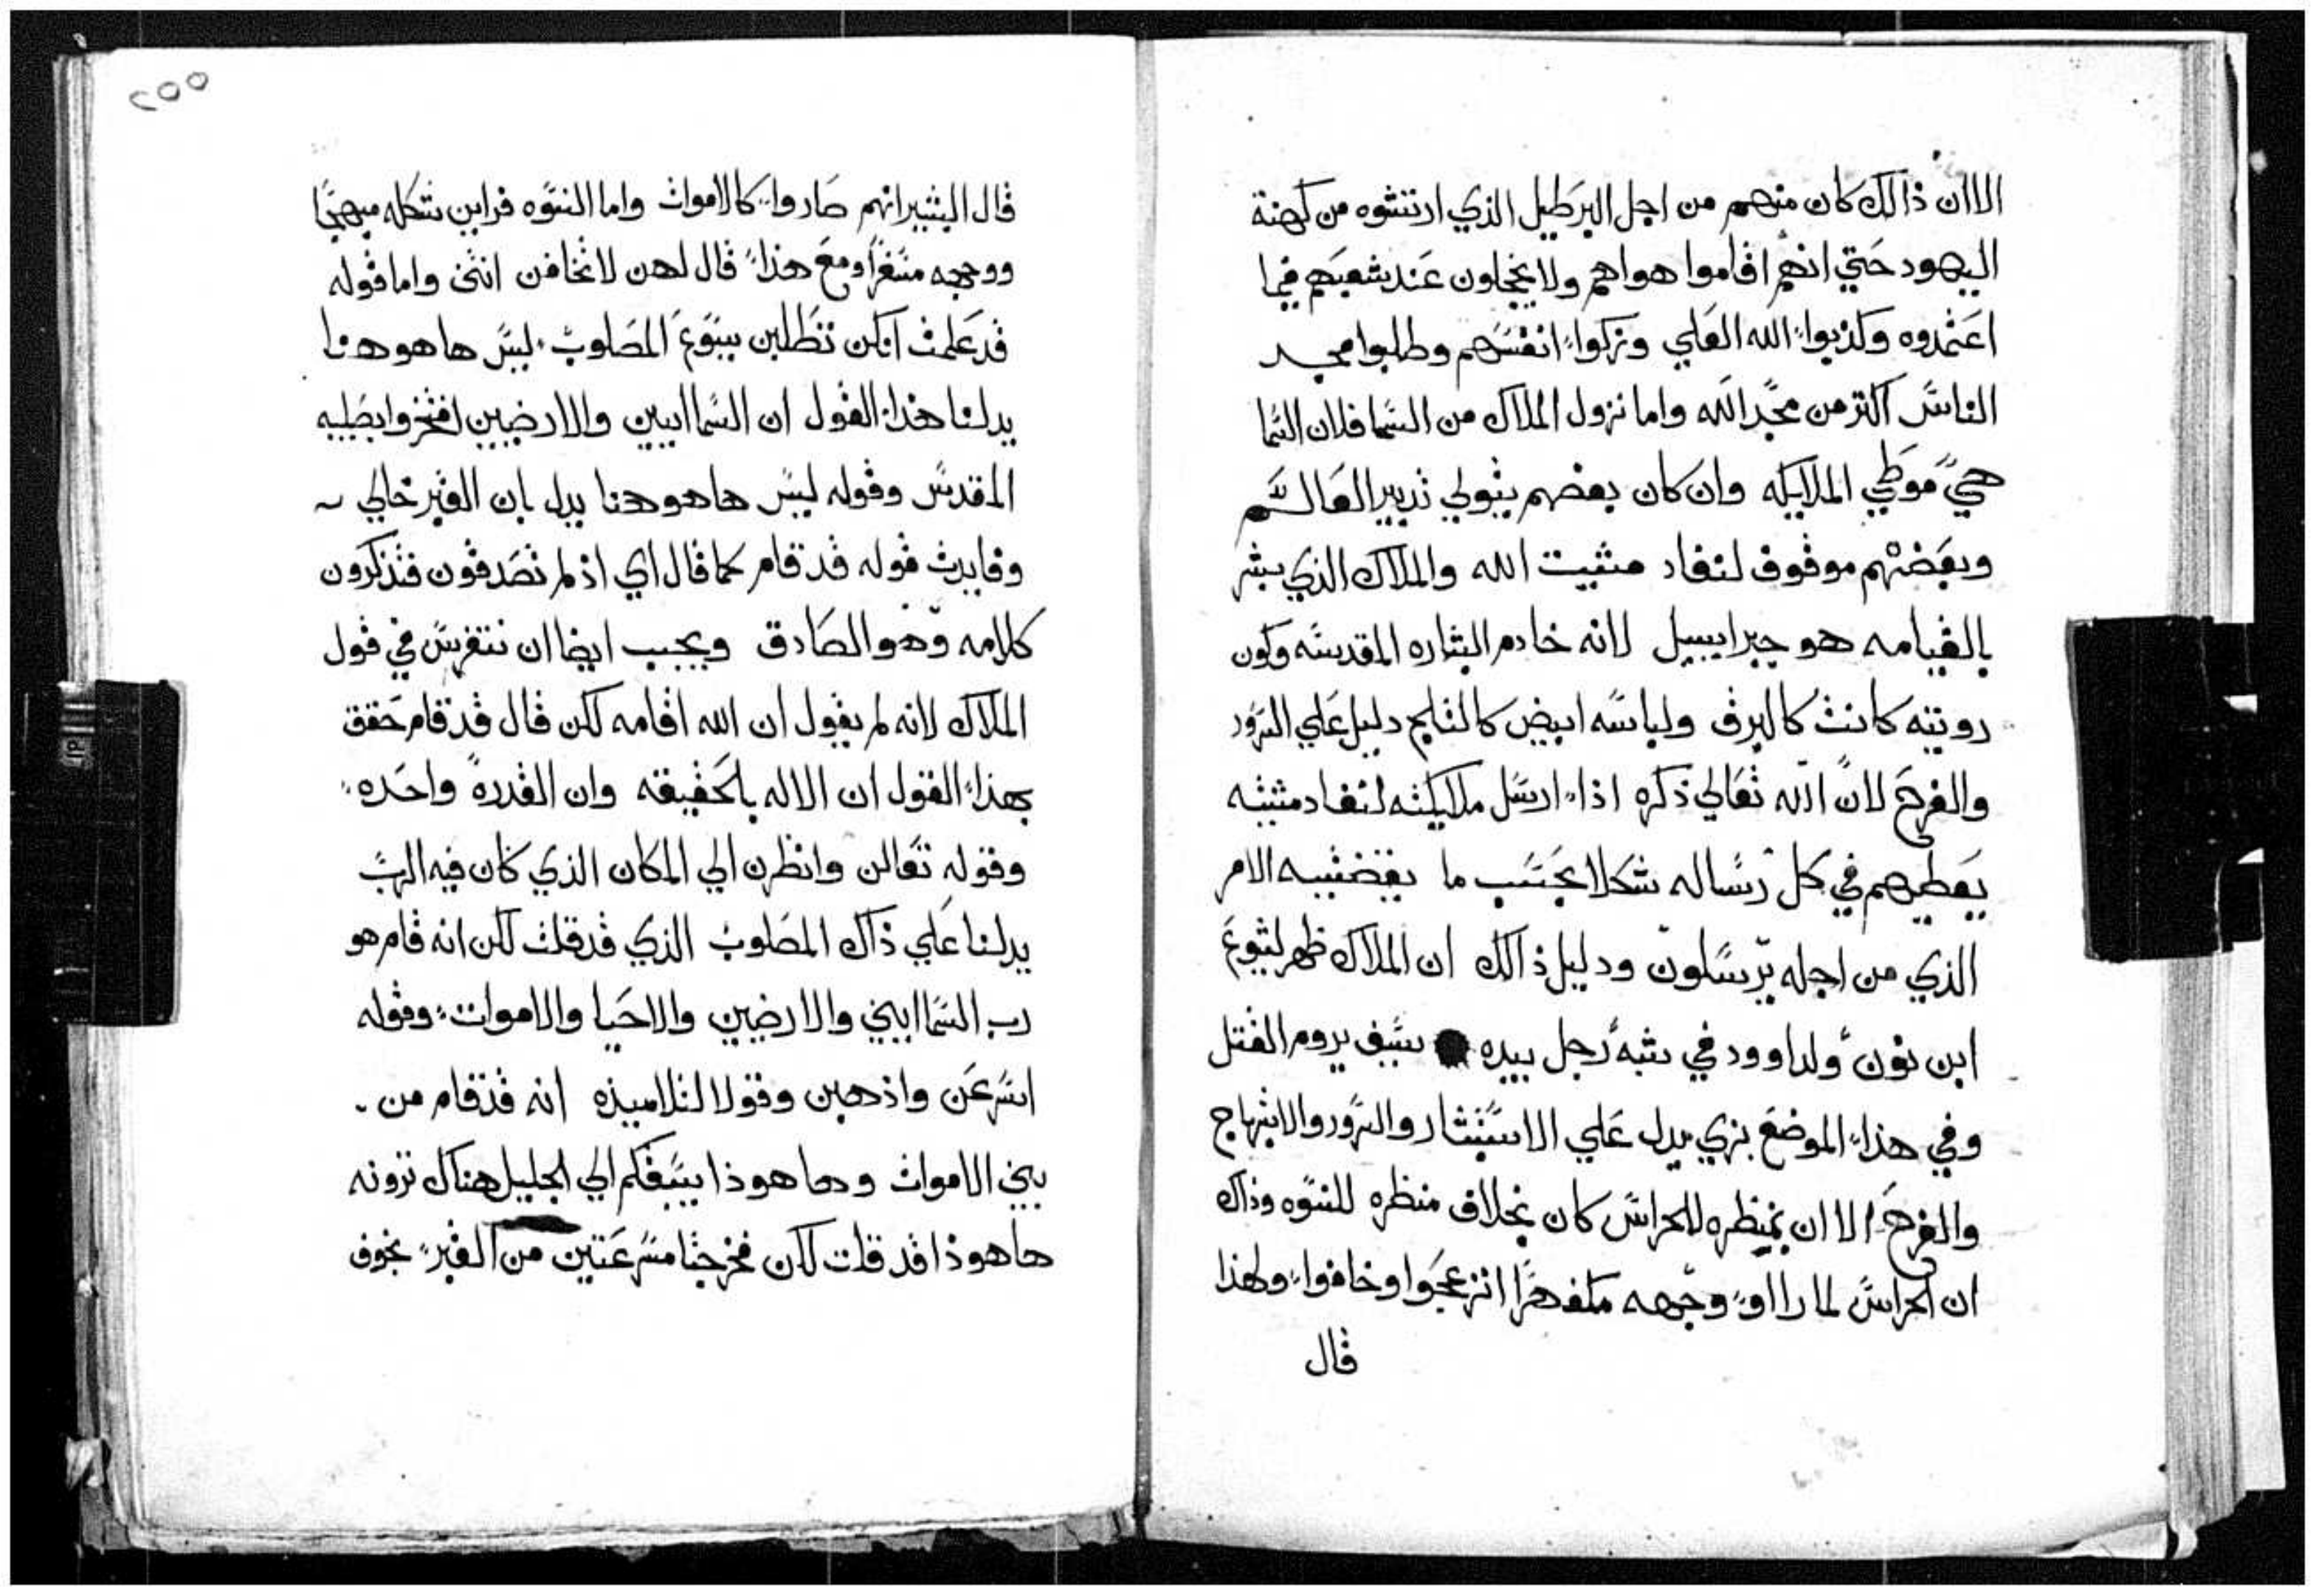 الاان ذالك كان منهم من اجل البرطيل الذي ارتشوه من كهنة
اليهود حتي انهم اقاموا هواهم ولا يخجلون عند شعبهم فيما
اعتمدوه وكذبوا الله العلي وزكوا انفسهم وطلبوا مجد
الناس اكتر من مجد الله واما نزول الملاك من السما فلان السما
هي موطي الملايكه وان كان بعضهم يتولي تدبير العالم
وبعضهم موقوف لنفاد مشيت الله والملاك الذي بشر
بالقيامه هو جبراييل لانه خادم البشاره المقدسه وكون
رويته كانت كالبرق ولباسه ابيض كالثلج دليل علي السرور
والفرح لان الله تعالي ذكره اذا ارسل ملايكته لنفاد مشيته
يعطيهم في كل رساله شكلا بحسب ما يقضيه الامر
الذي من اجله يرسلون ودليل ذالك ان الملاك ظهر ليشوع
ابن نون ولداوود في شبه رجل بيده سيف يروم القتل
وفي هذا الموضع بزي يدل علي الاستبشار والسرور والابتهاج
والفرح الا ان منظره للحراس كان بخلاف منظره للنسوه وذاك
ان الحراس لما رااو وجهه مكفهرا انزعجوا وخافوا ولهذا
قال
٢٥٥
قال البشير انهم صاروا كالاموات واما النسوه فراين شكله مبهجا
ووجهه متغرا ومع هذا قال لهن لا تخافن انتن واما قوله
قد علمت انكن تطلبن يسوع المصلوب ليس ها هو هنا
يدلنا هذا القول ان السماايين والارضيين افتخروا بصليبه
المقدس وقوله ليس ها هو هنا يدل بان القبر خالي
وفايدت قوله قد قام كما قال اي اذ لم تصدقون فتذكرون
كلامه وهو الصادق ويجب ايضا ان نتفرس في قول
الملاك لانه لم يقول ان الله اقامه لكن قال قد قام حقق
بهذا القول ان الاله بالحقيقه وان القدره واحده
وقوله تعالن وانظرن الي المكان الذي كان فيه الرب
يدلنا علي ذاك المصلوب الذي قد قلت لكن انه قام هو
رب السماايين والارضيين والاحيا والاموات وقوله
اسرعن واذهبن وقولا لتلاميذه انه قد قام من
بين الاموات وها هوذا يسبقكم الي الجليل هناك ترونه
ها هوذا قد قلت لكن فخرجتا مسرعتين من القبر بخوف